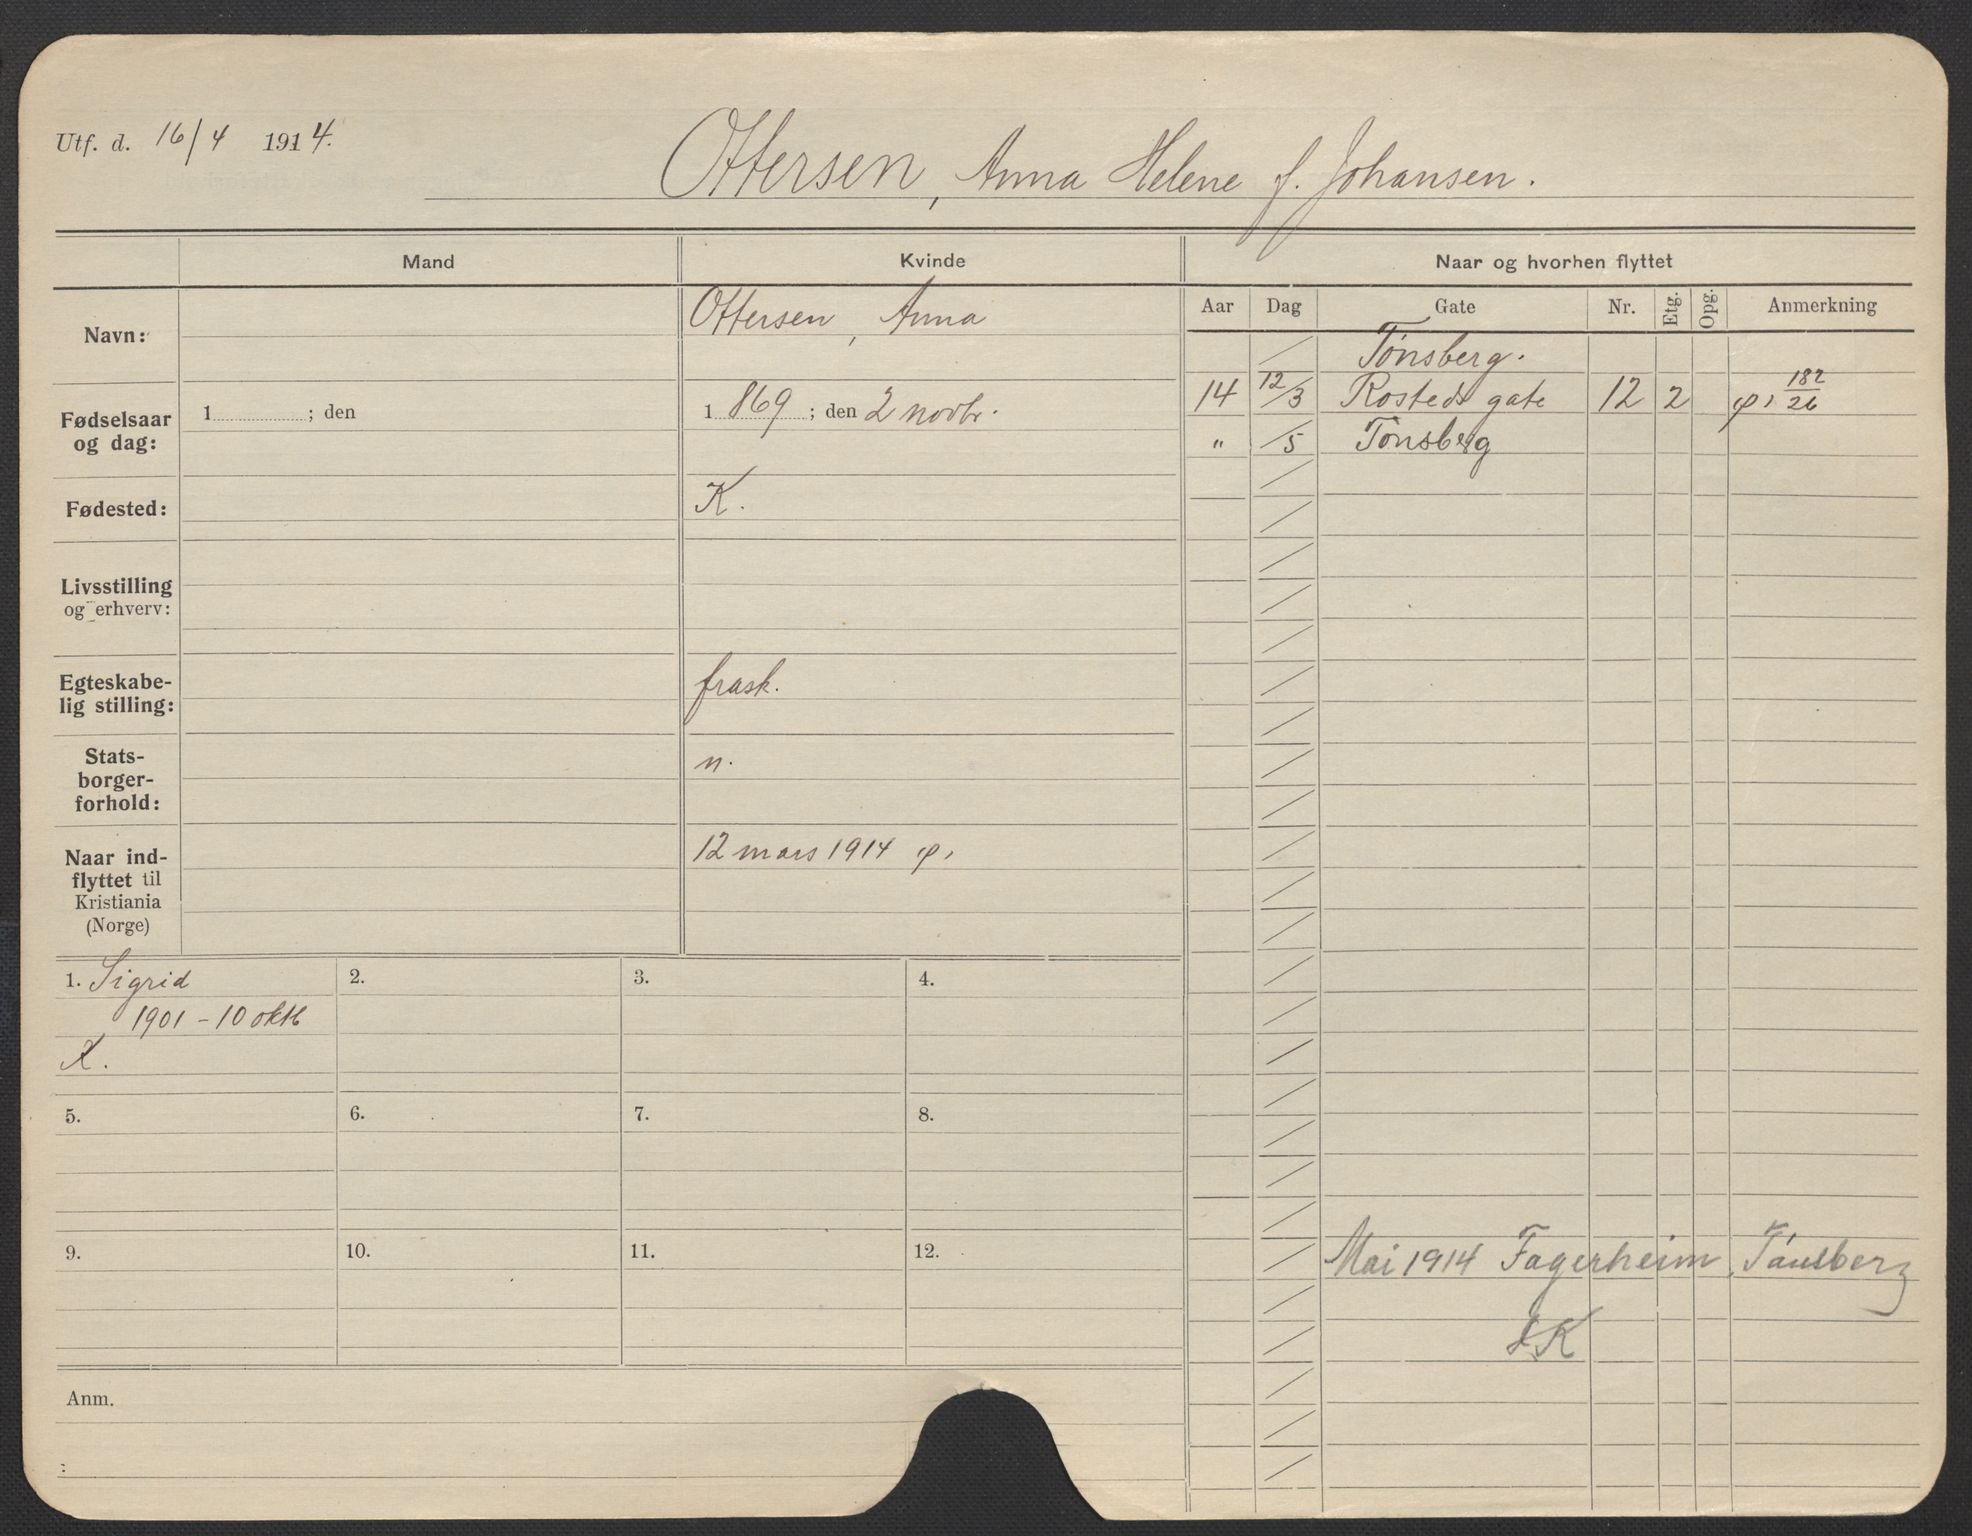 Utf. d. 16/4 1914.
Ottersen, Anna Helene f. Johansen.
Mand
Kvinde
Naar og hvorhen flyttet
Navn:
Ottersen, Anna
Fødselsaar og dag:
1 ; den
1 869 ; den 2 novbr.
Fødested:
K.
Livsstilling og erhverv:
Egteskabe-
lig stilling:
frask.
Stats-
borger-
forhold:
n.
Naar ind-
flyttet til
Kristiania
(Norge)
12 mars 1914 φ,
Aar Dag Gate Nr. Etg. Opg. Anmerkning
/ Tønsberg.
14 12/3 Rosteds gate 12 2 φ, 182/26
" /5 Tønsberg
Mai 1914 Fagerheim, Tønsberg
1. Sigrid
1901 - 10 oktb
K.
2.
3.
4.
5.
6.
7.
8.
9.
10.
11.
12.
Anm.